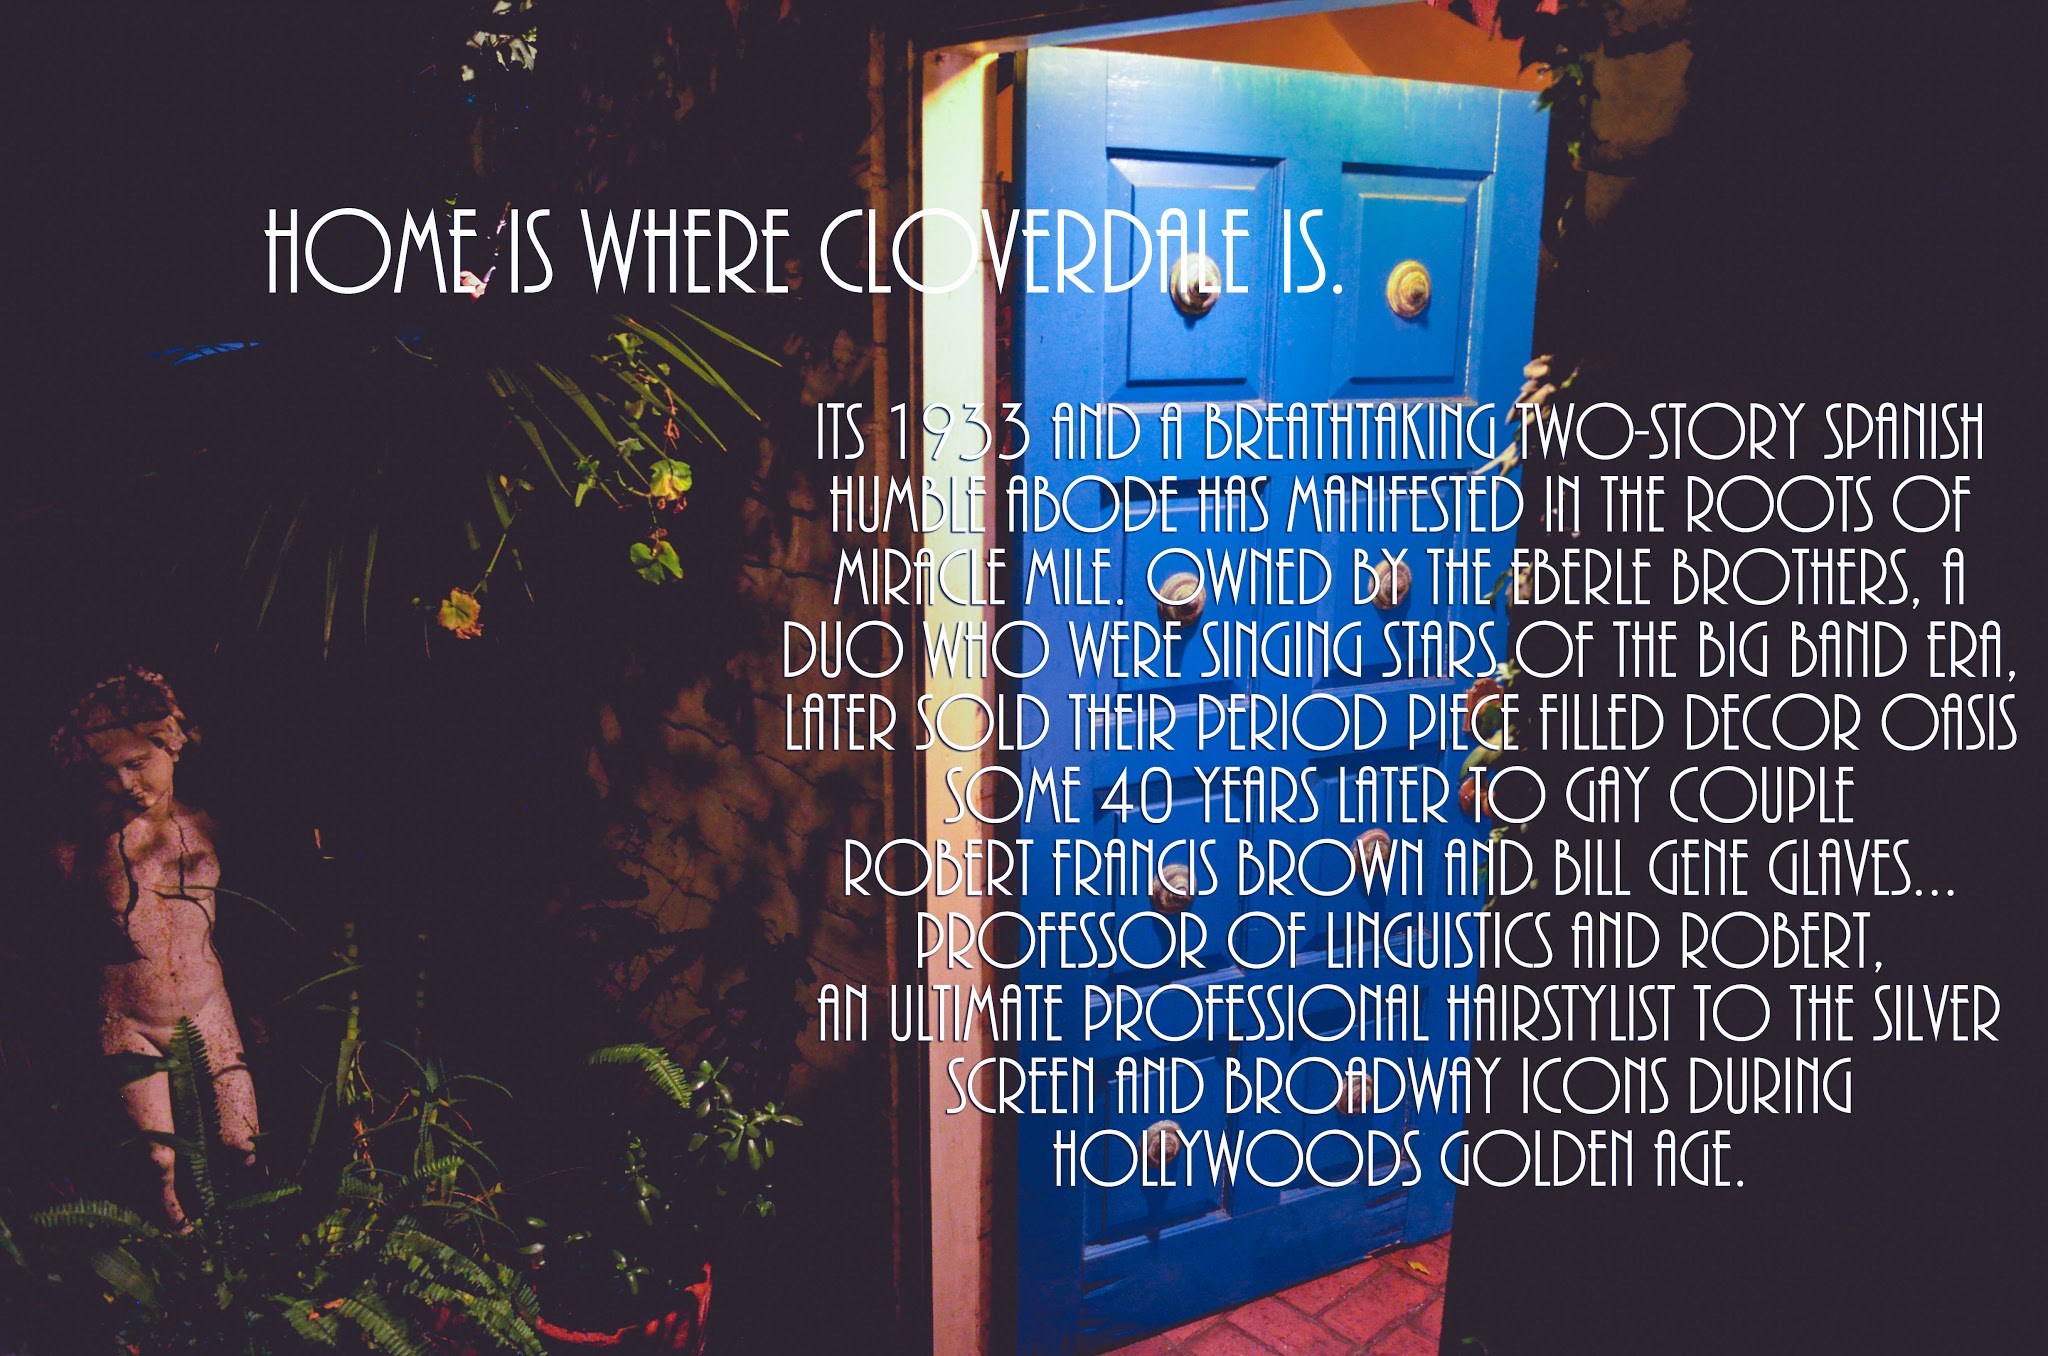 HOME IS WHERE CLOVERDALE IS.
ITS 1933 AND A BREATHTAKING TWO-STORY SPANISH
HUMBLE ABODE HAS MANIFESTED IN THE ROOTS OF
MIRACLE MILE. OWNED BY THE EBERLE BROTHERS, A
DUO WHO WERE SINGING STARS OF THE BIG BAND ERA,
LATER SOLD THEIR PERIOD PIECE FILLED DECOR OASIS
SOME 40 YEARS LATER TO GAY COUPLE
ROBERT FRANCIS BROWN AND BILL GENE GLAVES...
PROFESSOR OF LINGUISTICS AND ROBERT,
AN ULTIMATE PROFESSIONAL HAIRSTYLIST TO THE SILVER
SCREEN AND BROADWAY ICONS DURING
HOLLYWOODS GOLDEN AGE.